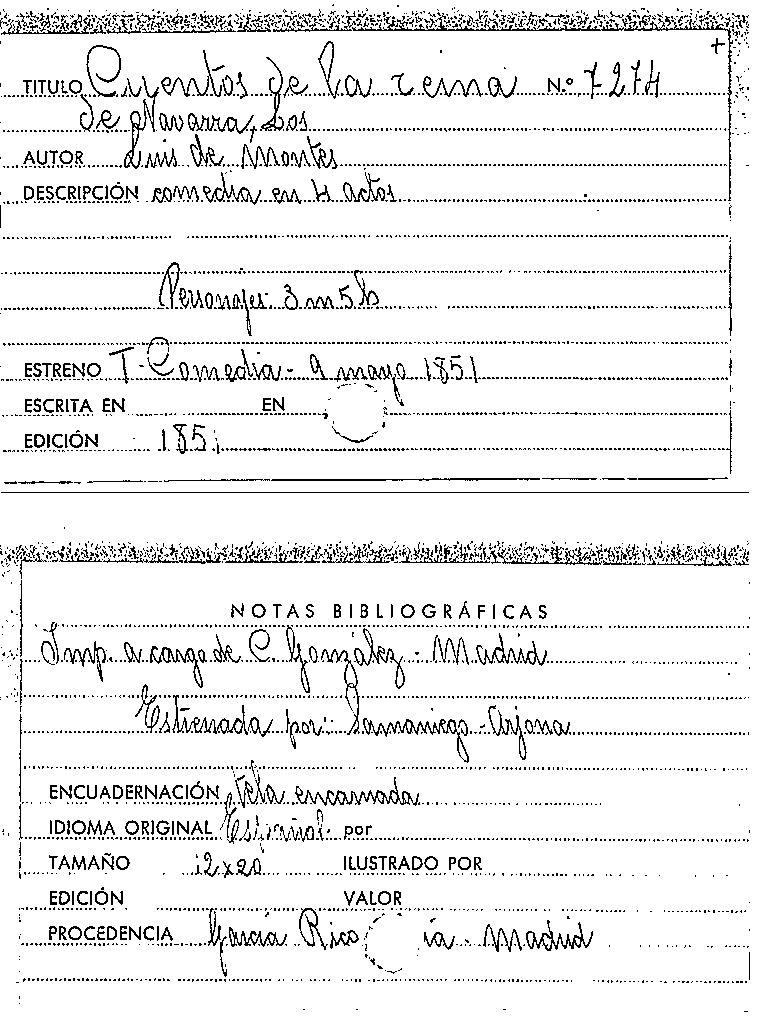 +
TITULO Cuentos de la reina N.º 7274
de Navarra, Los
AUTOR Luis de Montes
DESCRIPCIÓN comedia en 4 actos
Personajes 3 m 5 h
ESTRENO T. Comedia - 9 mayo 1851
ESCRITA EN EN
EDICIÓN 1851
NOTAS BIBLIOGRÁFICAS
Imp. a cargo de C. González - Madrid
Estrenada por: Samaniego - Arjona
ENCUADERNACIÓN tela encarnada
IDIOMA ORIGINAL Español por
TAMAÑO 12x20 ILUSTRADO POR
EDICIÓN VALOR
PROCEDENCIA García Rico ia - Madrid